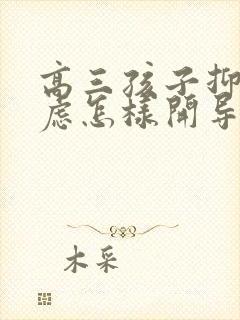 高三孩子抑
虑怎样开导
木采